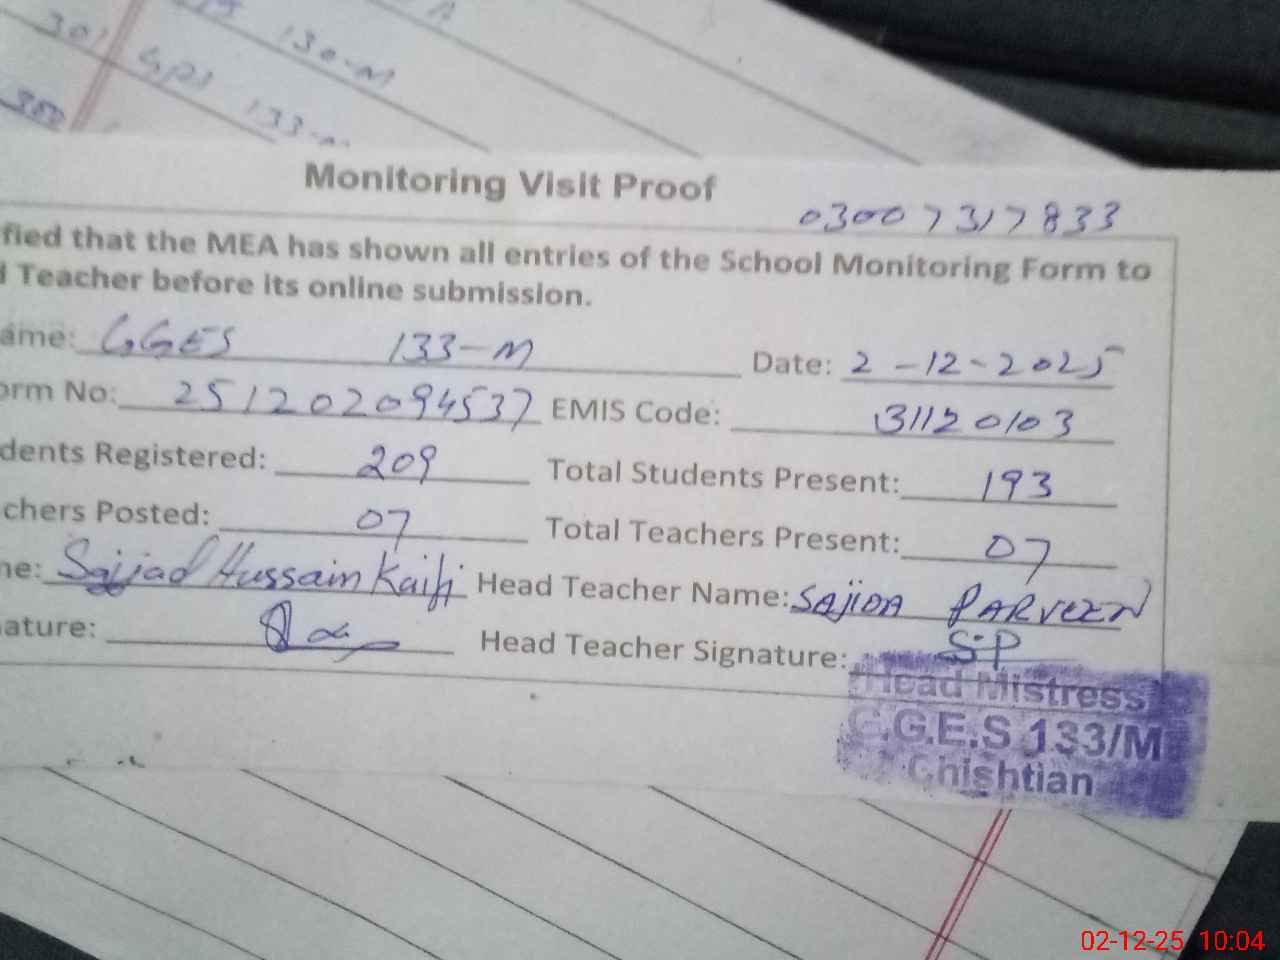 301 GPI 130-M
133-M
Monitoring Visit Proof
03007317833
fied that the MEA has shown all entries of the School Monitoring Form to
d Teacher before its online submission.
ame: GGES 133-M Date: 2-12-2025
orm No: 251202094537 EMIS Code: 31120103
dents Registered: 209 Total Students Present: 193
chers Posted: 07 Total Teachers Present: 07
ne: Sajjad Hussain Kaifi Head Teacher Name: SAJIDA PARVEEN
ature: Head Teacher Signature: S.P
Head Mistress
G.G.E.S 133/M
Chishtian
02-12-25 10:04